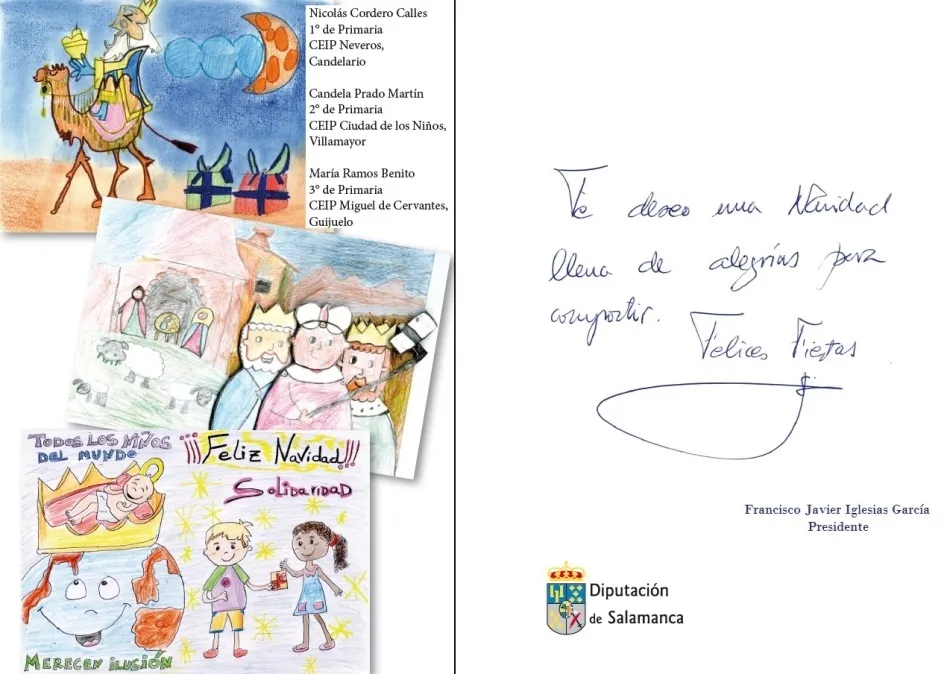 Nicolás Cordero Calles
1º de Primaria
CEIP Neveros,
Candelario
Candela Prado Martín
2º de Primaria
CEIP Ciudad de los Niños,
Villamayor
María Ramos Benito
3º de Primaria
CEIP Miguel de Cervantes,
Guijuelo
TODOS LOS NIÑOS
DEL MUNDO
¡¡¡FELIZ NAVIDAD!!!
SOLIDARIDAD
MERECEN ILUSIÓN
Te deseo una Navidad
llena de alegrías para
compartir.
Felices Fiestas
Francisco Javier Iglesias García
Presidente
Diputación
de Salamanca